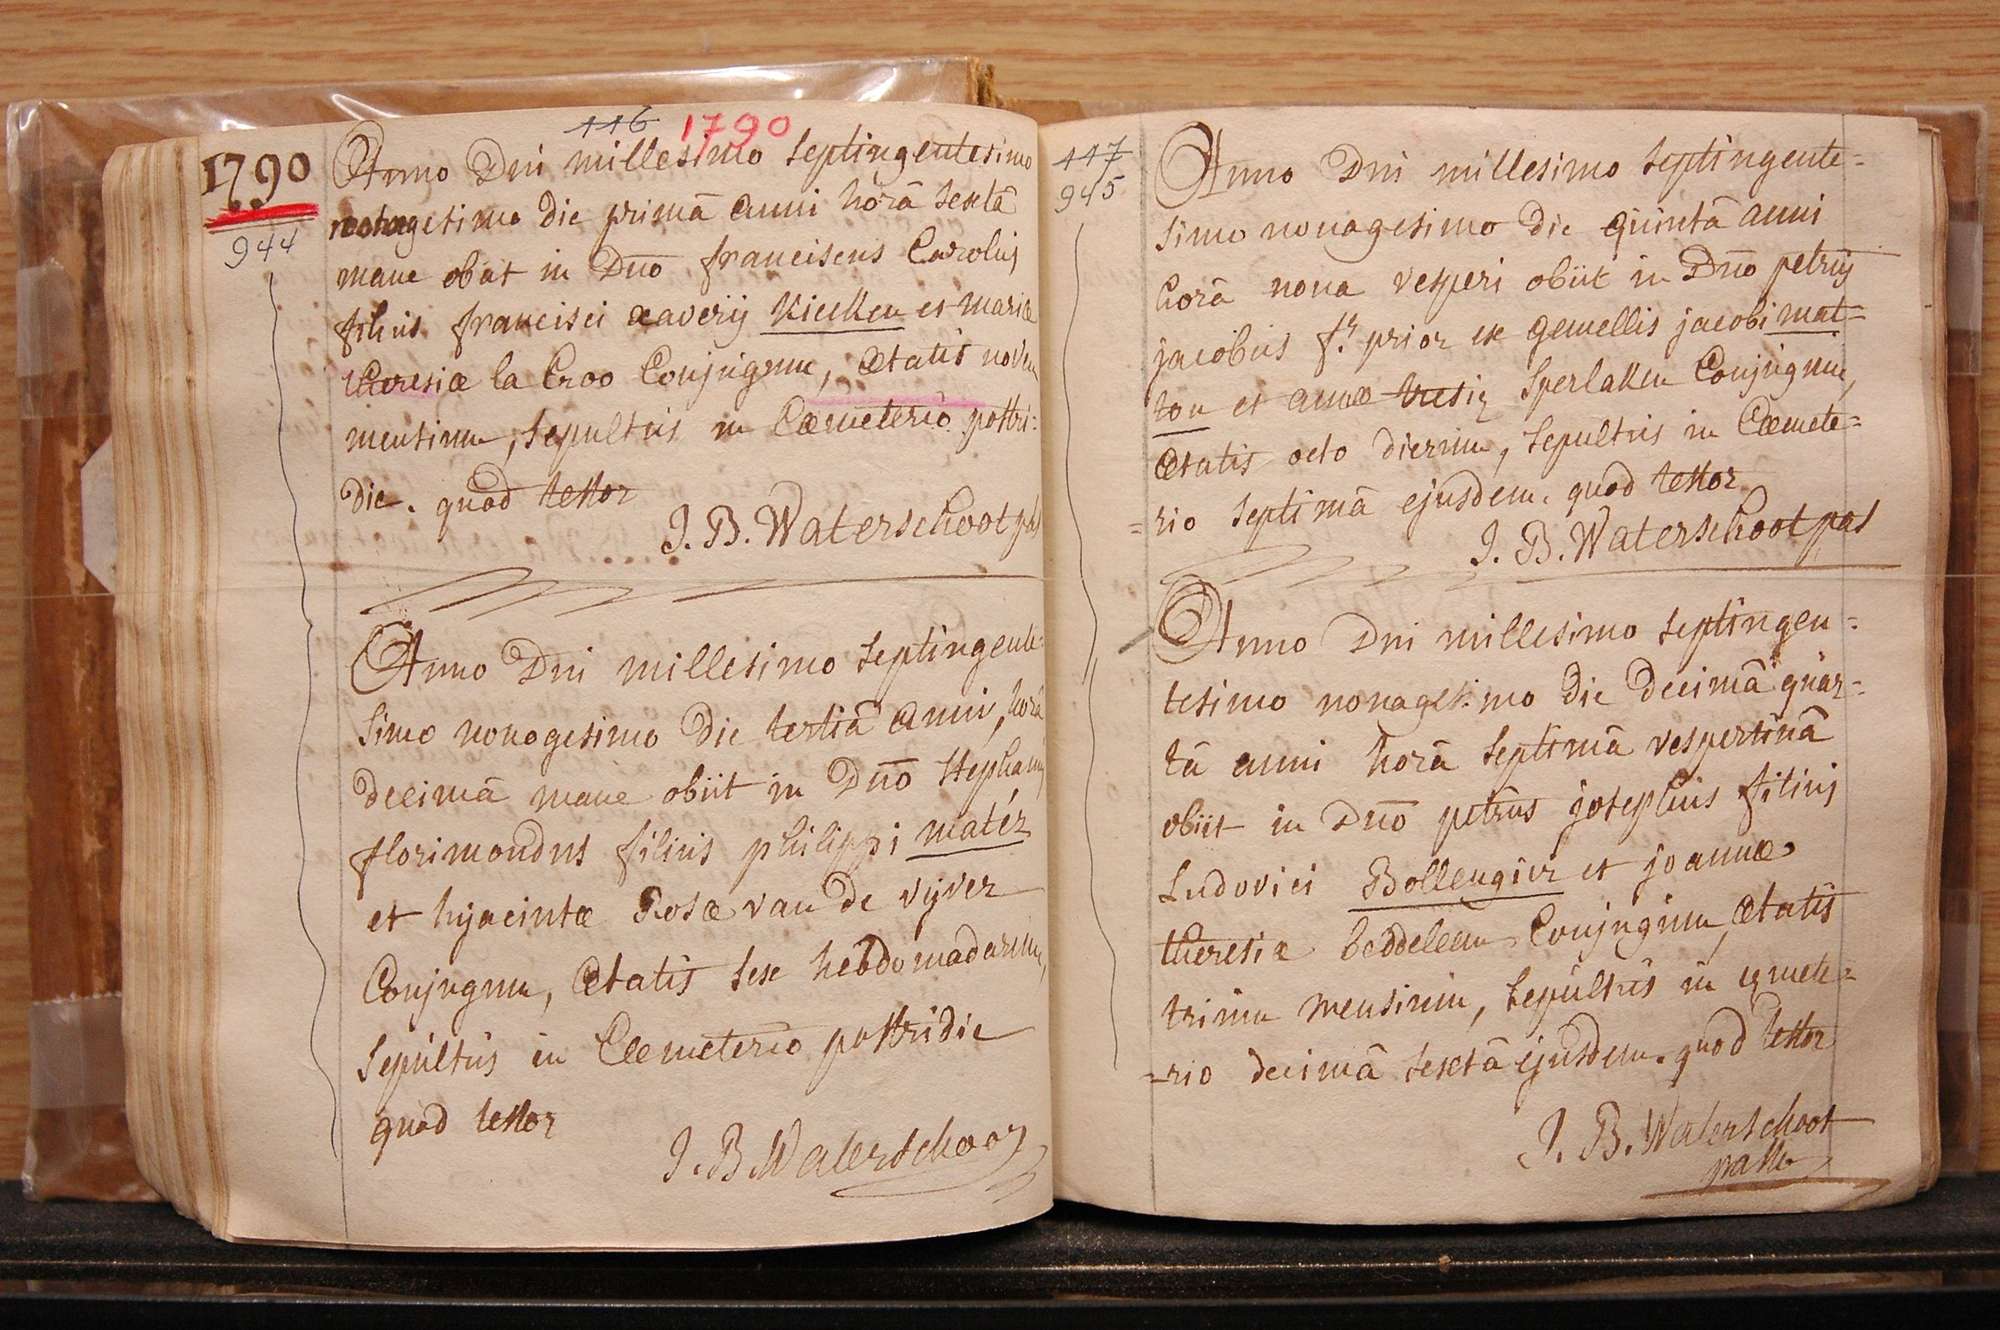 1790
944
116 1790
Anno Dni millesimo septingentesimo
nonagesimo die primâ anni horâ sextâ
mane obiit in Dno franciscus Carolus
filius francisci xaverij Kiecken et mariæ
theresiæ la Croo Conjugum, ætatis novem
mensium, sepultus in Cæmeterio postri=
die. quod testor
J. B. Waterschoot pas
Anno Dni millesimo septingente=
simo nonagesimo die tertiâ anni, horâ
decimâ mane obiit in Dno stephanus
florimondus filius philippi matér
et hyacintæ Rosæ van de vyver
Conjugum, ætatis sex hebdomadarum,
sepultus in Cæmeterio postridie
quod testor
J. B. Waterschoot
117
945
Anno Dni millesimo septingente=
simo nonagesimo die quintâ anni
horâ nona vesperi obiit in Dno petrus
jacobus fr. prior ex gemellis jacobi mat=
ton et annæ Sperlaken Conjugum,
ætatis octo dierum, sepultus in Cæmete=
=rio septimâ ejusdem. quod testor
J. B. Waterschoot pas
Anno Dni millesimo septingen=
tesimo nonagesimo die decimâ quar=
tâ anni horâ septimâ vespertinâ
obiit in Dno petrus josephus filius
Ludovici Bollengier et joannæ
theresiæ beddeleem Conjugum, ætatis
trium mensium, sepultus in cymete=
=rio decimâ sextâ ejusdem. quod testor
J. B. Waterschoot
pastor